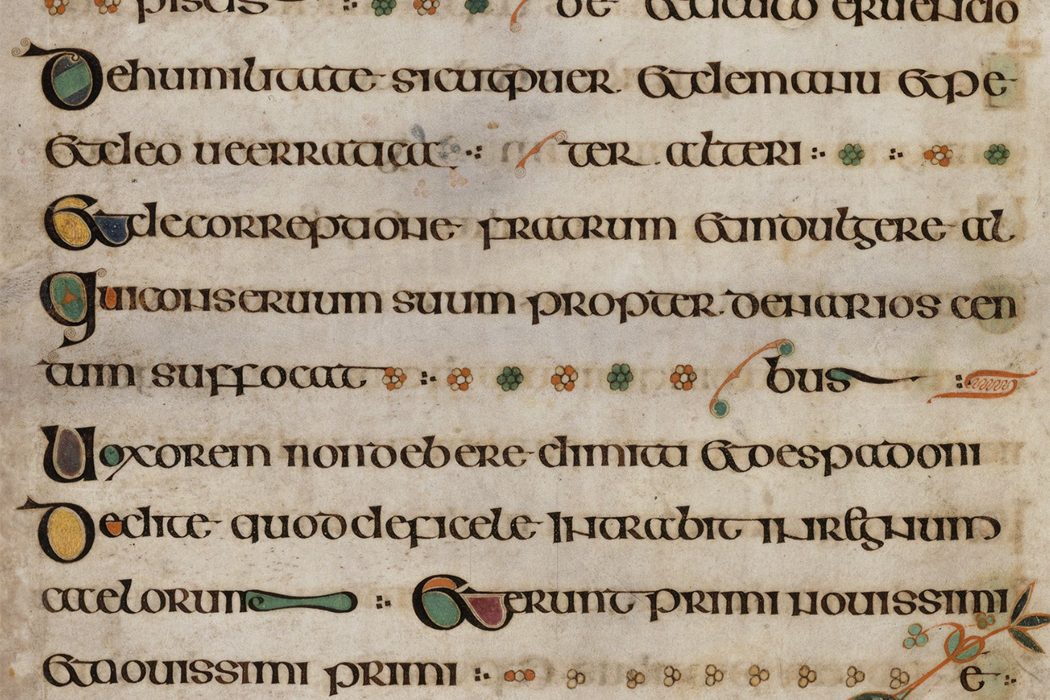 piscis de eruendo
Dehumilitate sicutpuer. &demanu &pe
&deo ueerratica ter. alteri
&decorreptione fratrum &indulgere al
quiconseruum suum propter.denarios cen
tum suffocat bus
Uoxorem nondebere dimitti &despadoni
Dedite quoddeficele Intrabit Inregnum
caelorum &erunt primi nouissimi
&nouissimi primi e